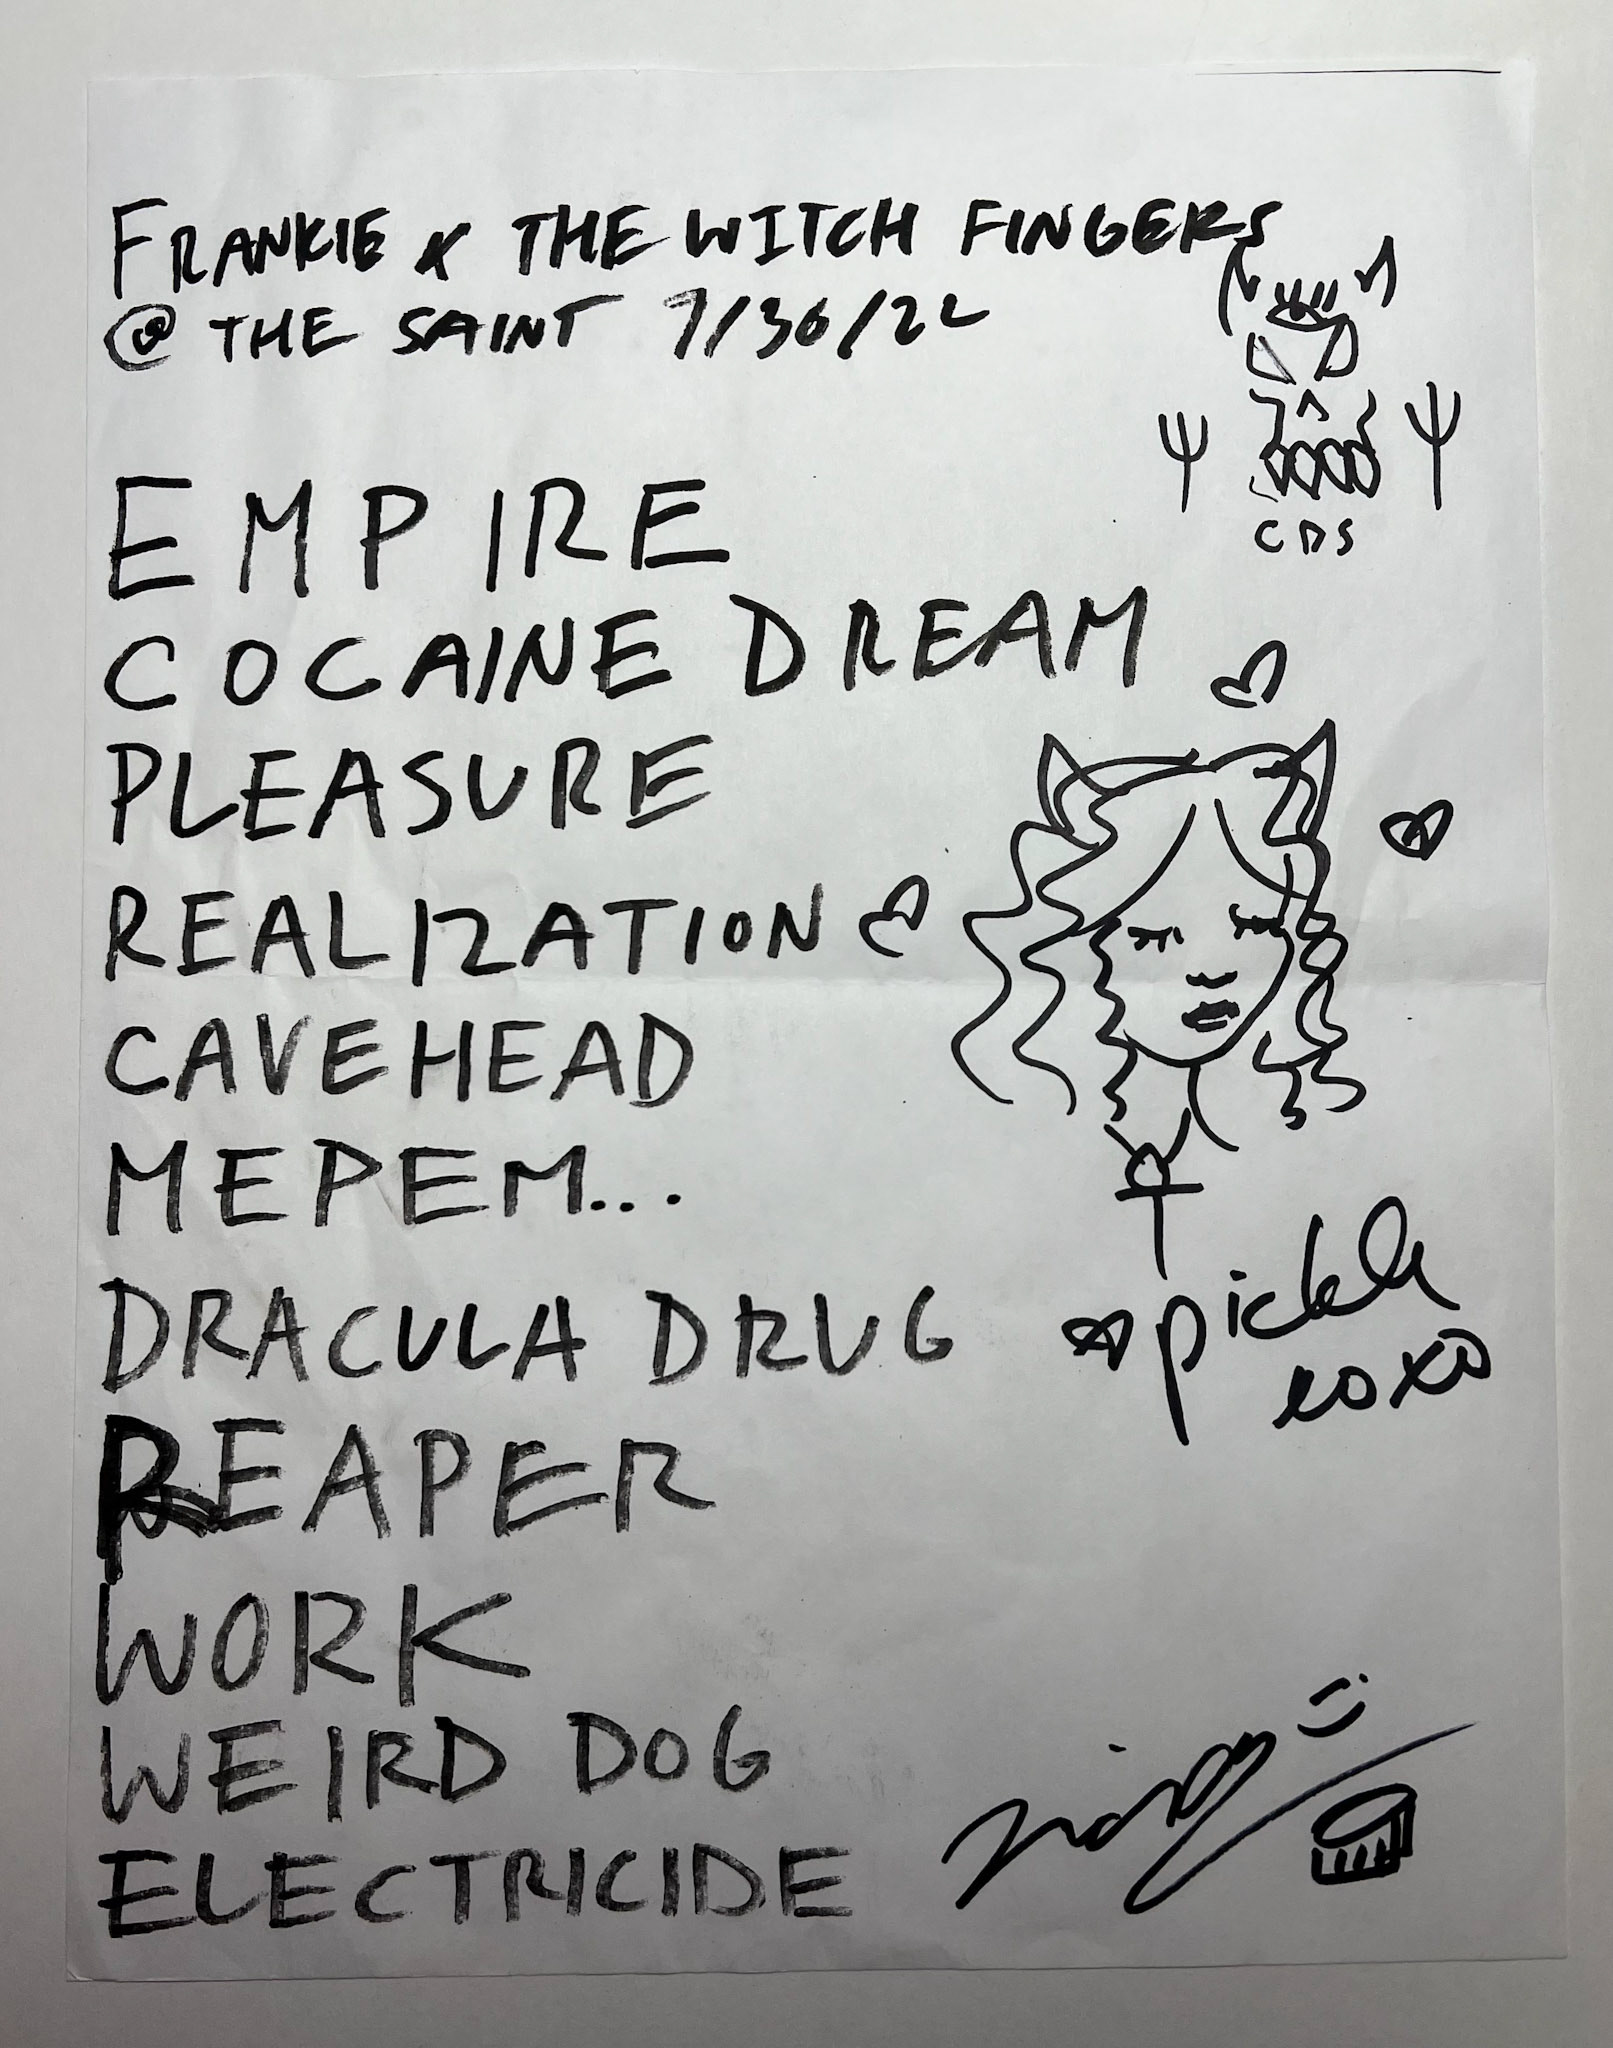 FRANKIE & THE WITCH FINGERS
@ THE SAINT 7/30/22
CDS
EMPIRE
COCAINE DREAM
PLEASURE
REALIZATION
CAVEHEAD
MEPEM...
DRACULA DRUG
pickle
xoxo
REAPER
WORK
WEIRD DOG
ELECTRICIDE